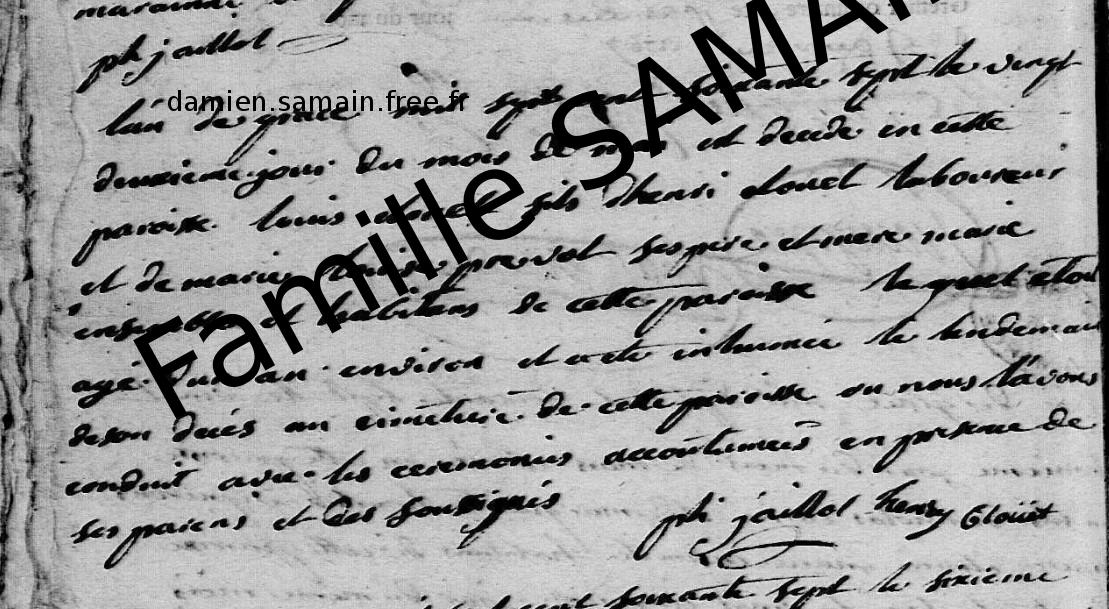 ph jaillot
damien.samain.free.fr
Famille SAMAIN
lan de grace mil sept cent soixante sept le vingt
deuxieme jour du mois de mars est decede en cette
paroisse louis clouet fils dhenri clouet laboureur
et de marie louise prevost ses pere et mere marie
ensemble et habitans de cette paroisse lequel etoit
agé dun an environ et a eté inhumée le lendemain
deson decés au cimetiere de cette paroisse ou nous l'avons
conduit avec les ceremonies accoutumées en presence de
ses parens et des soussignés
ph jaillot henry Clouet
cent soixante sept le sixieme